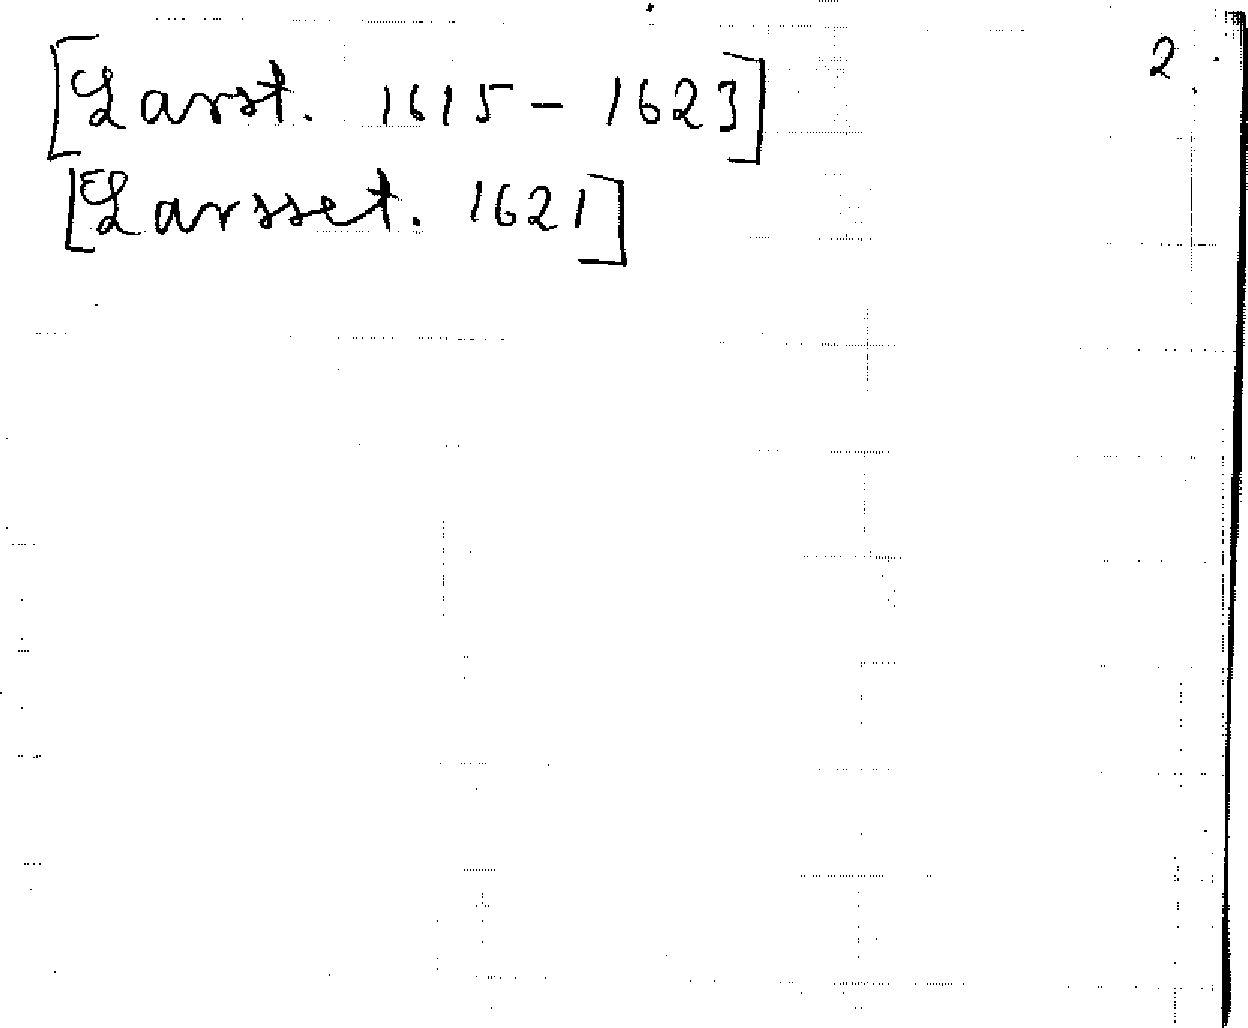 2
[Larst. 1615 – 1623]
[Larsset. 1621]